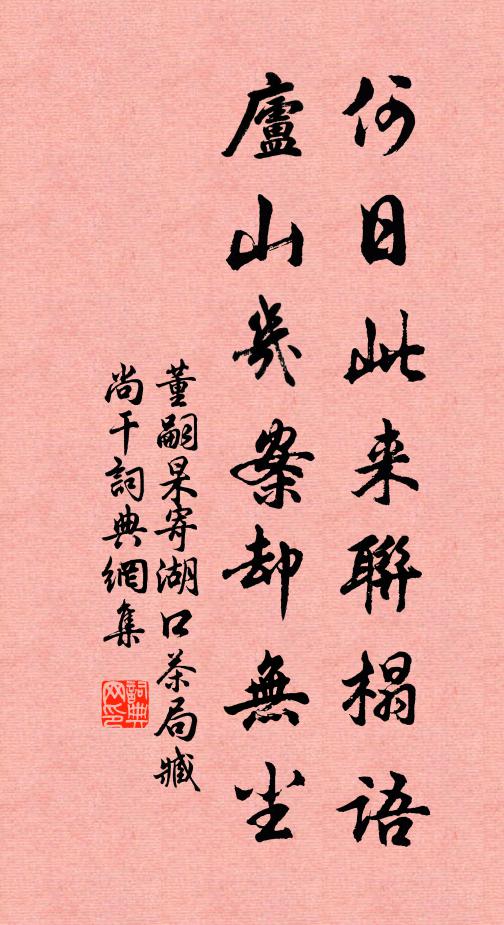 何日此来聯榻语
廬山几案却無尘
董嗣杲寄湖口茶局臧
尚干詞典網集
詞典网印